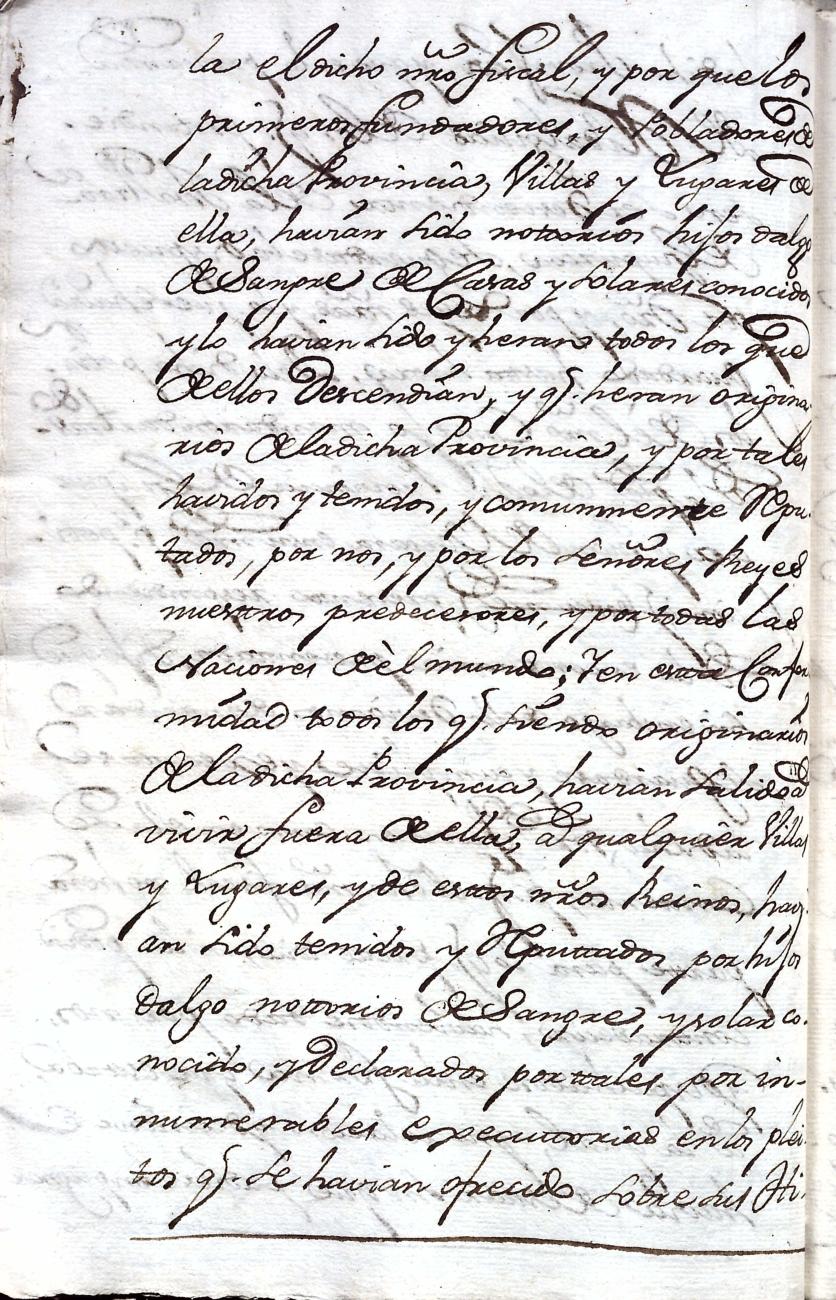 la el dicho nrõ fiscal, y por que los
primeros fundadores, y Pobladores de
la dicha Provincia, Villas y Lugares de
ella, havian sido nottorios hijos dalgo
de Sangre de Casas y solares conocidos
y lo havian sido y heran todos los que
de ellos Descendian, y q.e heran origina-
rios de la dicha Provincia, y por tales
havidos y tenidos, y comunmente Repu-
tados, por nos, y por los señores Reyes
nuestros predecesores, y por todas las
Naciones de el mundo; Y en esta Confor
midad todos los q.e siendo originarios
de la dicha Provincia, havian salido a
vivir fuera de ella, a qualquier Villas
y Lugares, y de estos nrõs Reinos, havi
an sido tenidos y Reputtados por hijos
dalgo nottorios de Sangre, y solar co-
nocido, y Declarados por ttales por in-
numerables executtorias en los plei-
tos q.e se havian ofrecido sobre sus Hi-